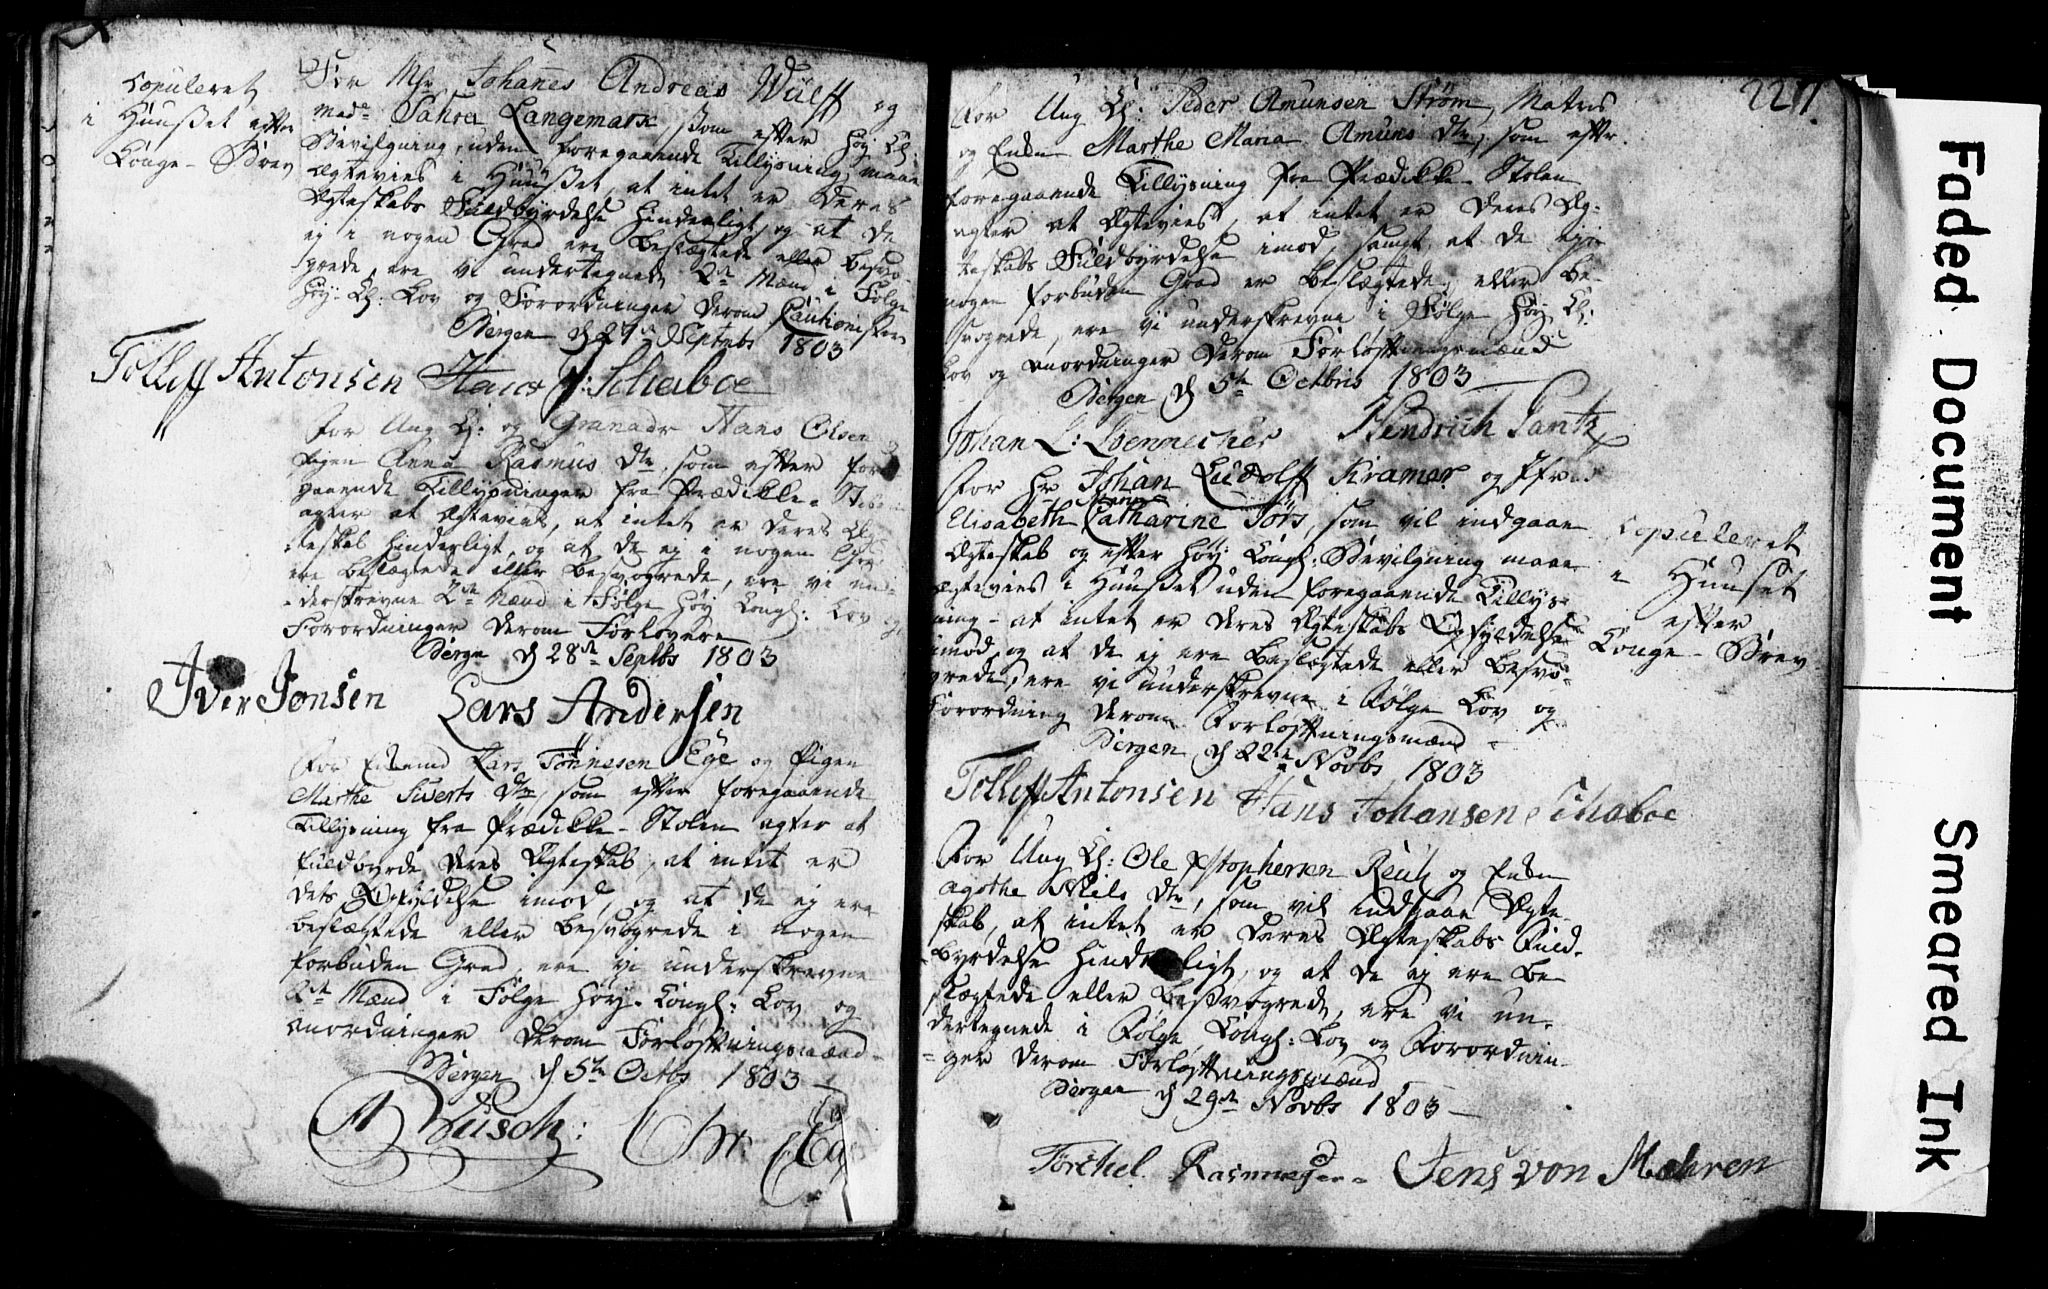 Copuleret
i Huuset efter
Konge-Brev
For Mr Johannes Andreas Wülff og
Mad. Sahra Langemarx, som efter Høy Kl:
Bevilgning, uden foregaaende Tillysning maae
Ægtevies i Huuset, at intet er Deres
Ægteskabs Fuldbyrdelse hinderligt, og at de
ej i nogen Grad ere beslægtede eller besvo-
grede, ere vi undertegnede 2de Mænd i Følge
Høy-Kl: Lov og Forordninger derom Cautionister
Bergen d 27de Septembr 1803
Tolleff Antonsen Hans J: Schaboe
For Ung K: og Granadr Hans Olsen
Pigen Anna Rasmus Dtr, som efter fore-
gaaende Tillysninger fra Prædikke-Stolen
agter at Ægtevies, at intet er deres Æg-
teskab hinderligt, og at de ej i nogen Grad
ere beslægtede eller besvogrede, ere vi un-
derskrevne 2de Mænd i Følge Høy Kongl: Lov og
Forordninger derom Forlovere
Bergen d 28de Septbr 1803
Iver Jonsen Lars Andersen
For Enkemd Lars Tönnesen Ege og Pigen
Marthe Siverts Dtr, som efter foregaaende
Tillysning fra Prædikke-Stolen agter at
fuldbyrde deres Ægteskab, at intet er
dets Opfyldelse imod, og at de ej ere
beslægtede eller besvogrede i nogen
forbuden Grad, ere vi underskrevne
2de Mænd i Følge Høy-Kongl: Lov og
anordninger derom Forløftningsmænd
Bergen d 5te Octbr 1803
A Büsch: Chr. Eg
227.
For Ung K: Peder Amunsen Strøm, Matros
og Enken Marthe Maria Amuns Dtr, som efter
foregaaende Tillysning fra Prædikke-Stolen
agter at Ægtevies, at intet er deres Æg-
teskabs Fuldbyrdelse imod, samt at de ej i
nogen forbuden Grad er beslægtede, eller be-
svogrede, ere vi underskrevne i Følge Høy Kl:
Lov og anordninger derom Forløftningsmænd
Bergen d 5te Octbris 1803
Johan L: Lennecher Hendrich Pantz
For Hr Johan Ludolff Kramer og Jfr
Elisabeth Catharine Jörs, som vil indgaae
Ægteskab og efter Høy: Kongl: Bevilgning maae
Ægtevies i Huuset uden foregaaende Tillys-
ning - at intet er deres Ægteskabs Opfyldelse
imod, og at de ej ere beslægtede eller besvo-
grede, ere vi underskrevne i Følge Lov og
Forordning derom Forløftningsmænd
Bergen d 22de Novbr 1803
Copuleret
i Huuset
efter
Konge-Brev
Tolleff Antonsen Hans Johansen Schaboe
For Ung K: Ole Xstophersen Reutz og Enken
Agathe Niels Dtr, som vil indgaae Ægte-
skab, at intet er deres Ægteskabs Fuld-
byrdelse hinderligt, og at de ej ere be-
slægtede eller besvogrede, ere vi un-
dertegnede i Følge Kongl: Lov og Forordnin-
ger derom Forløftningsmænd
Bergen d 29de Novbr 1803
Torchel Rasmusen Jens von Mehren
Faded Document
Smeared Ink